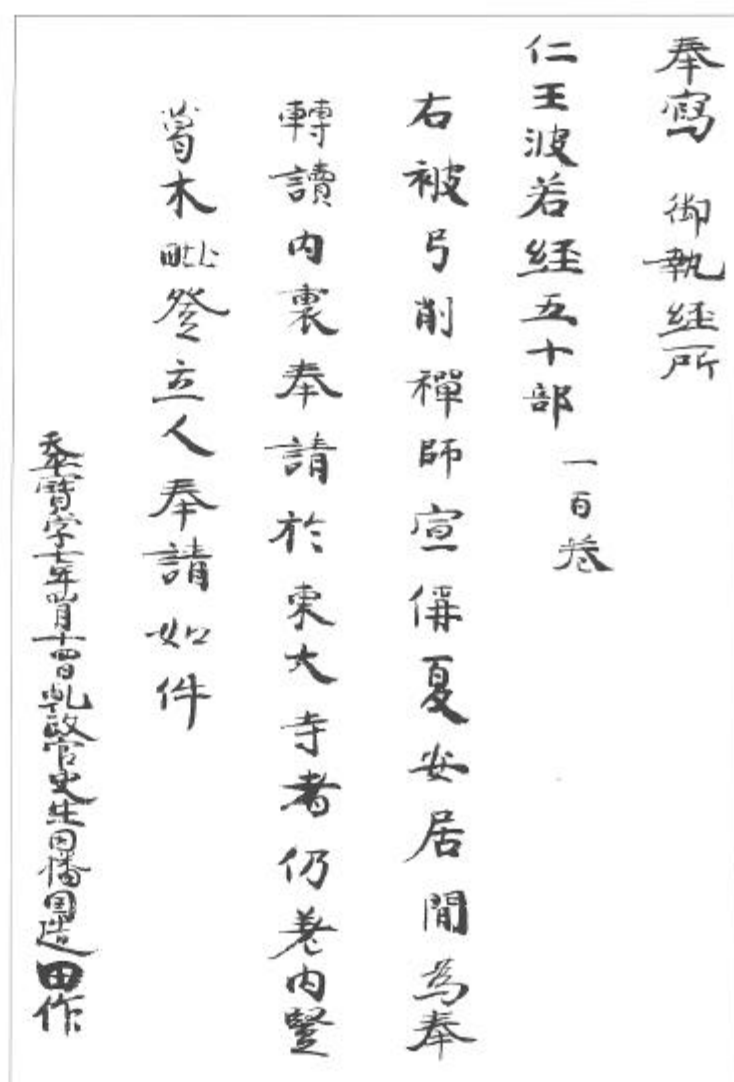 奉寫 御執経所
仁王波若経五十部 一百巻
右被弓削禪師宣偁夏安居間為奉
轉讀内裏奉請於東大寺者仍差内豎
葛木毗登立人奉請如件
天平寶字七年四月十四日乾政官史生因幡國造田作